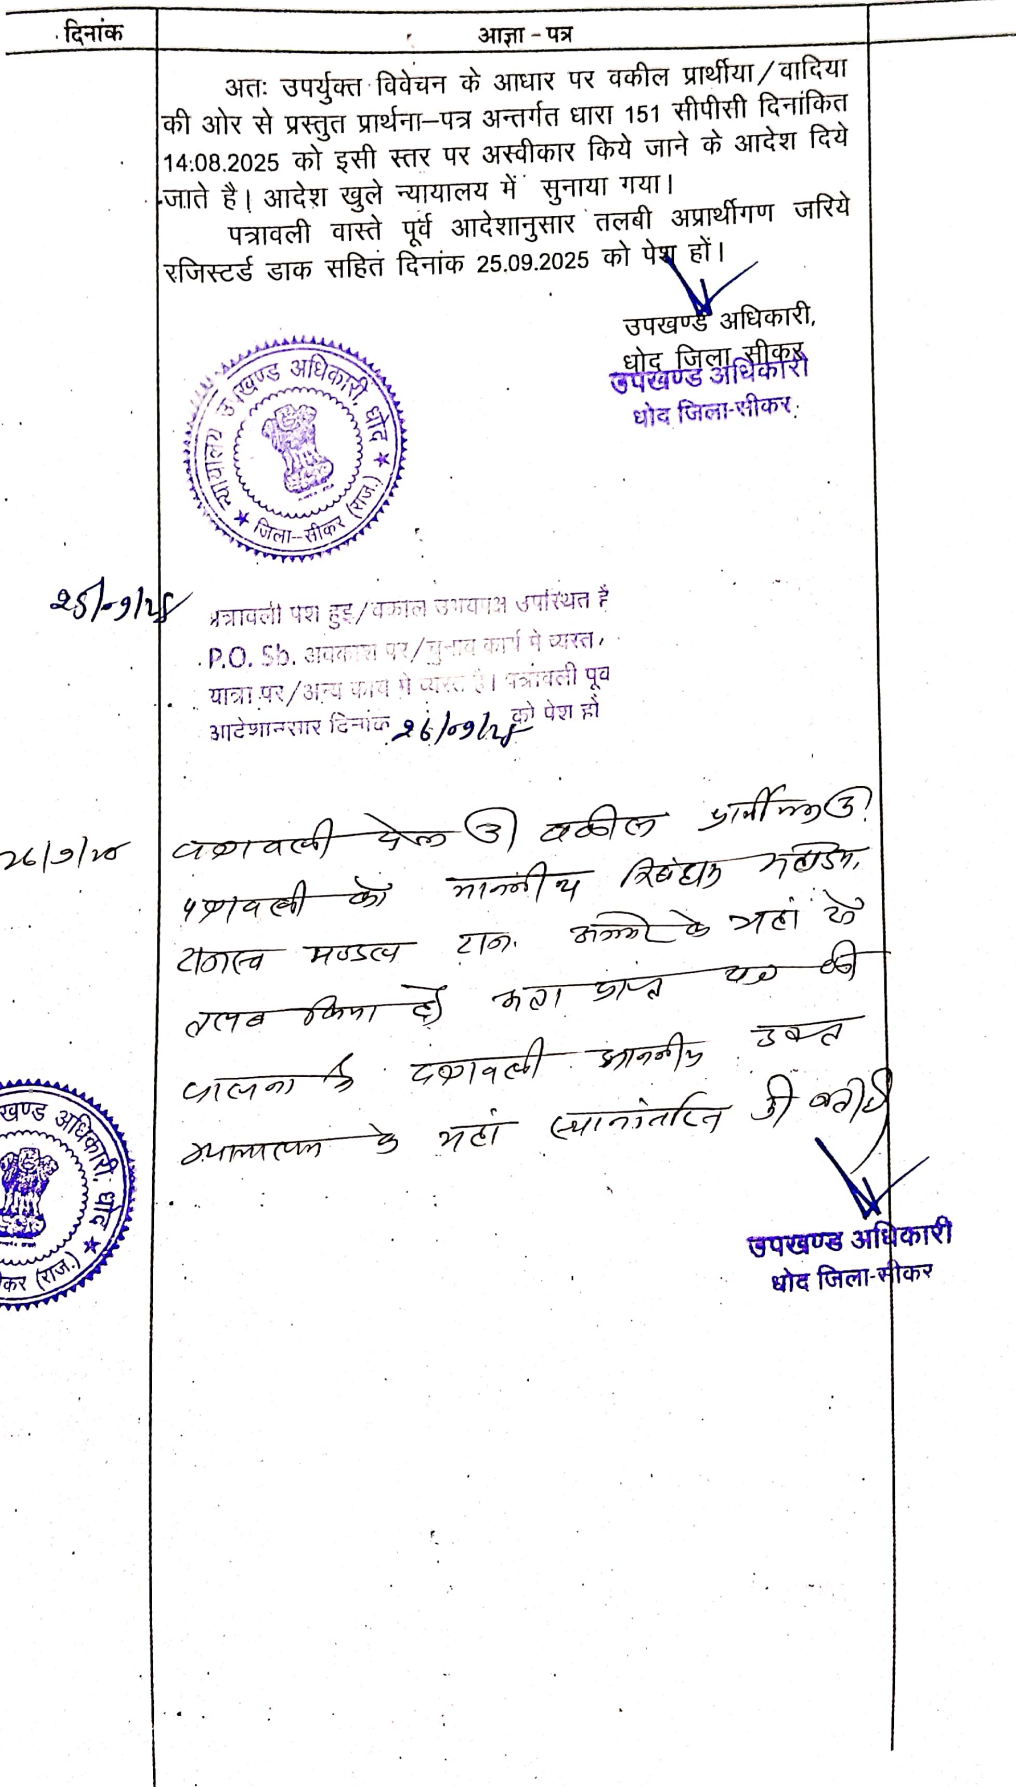 दिनांक
आज्ञा - पत्र
अतः उपर्युक्त विवेचन के आधार पर वकील प्रार्थीया/वादिया
की ओर से प्रस्तुत प्रार्थना-पत्र अन्तर्गत धारा 151 सीपीसी दिनांकित
14:08.2025 को इसी स्तर पर अस्वीकार किये जाने के आदेश दिये
जाते है। आदेश खुले न्यायालय में सुनाया गया।
पत्रावली वास्ते पूर्व आदेशानुसार तलबी अप्रार्थीगण जरिये
रजिस्टर्ड डाक सहित दिनांक 25.09.2025 को पेश हों।
उपखण्ड अधिकारी,
धोद जिला सीकर
उपखण्ड अधिकारी
धोद जिला-सीकर
न्यायालय उपखण्ड अधिकारी, धोद
★ जिला-सीकर (राज.) ★
पत्रावली पेश हुइ/वकील उभयपक्ष उपस्थित है
P.O. Sb. अवकाश पर/चुनाव कार्य मे व्यस्त,
यात्रा पर/अन्य कार्य मे व्यस्त है। पत्रावली पूव
आदेशानसार दिनांक 26/09/25 को पेश हो
26/9/25
पत्रावली पेश वकील
पत्रावली को माननीय निबंधक
राजस्व मण्डल राज. अजमेर के यहां से
तलब किया है। अतः प्राप्त पत्र की
पालना में पत्रावली माननीय उक्त
न्यायालय के यहां स्थानांतरित की जाती है
खण्ड अधिकारी, धोद ★
कर (राज.)
उपखण्ड अधिकारी
धोद जिला-सीकर